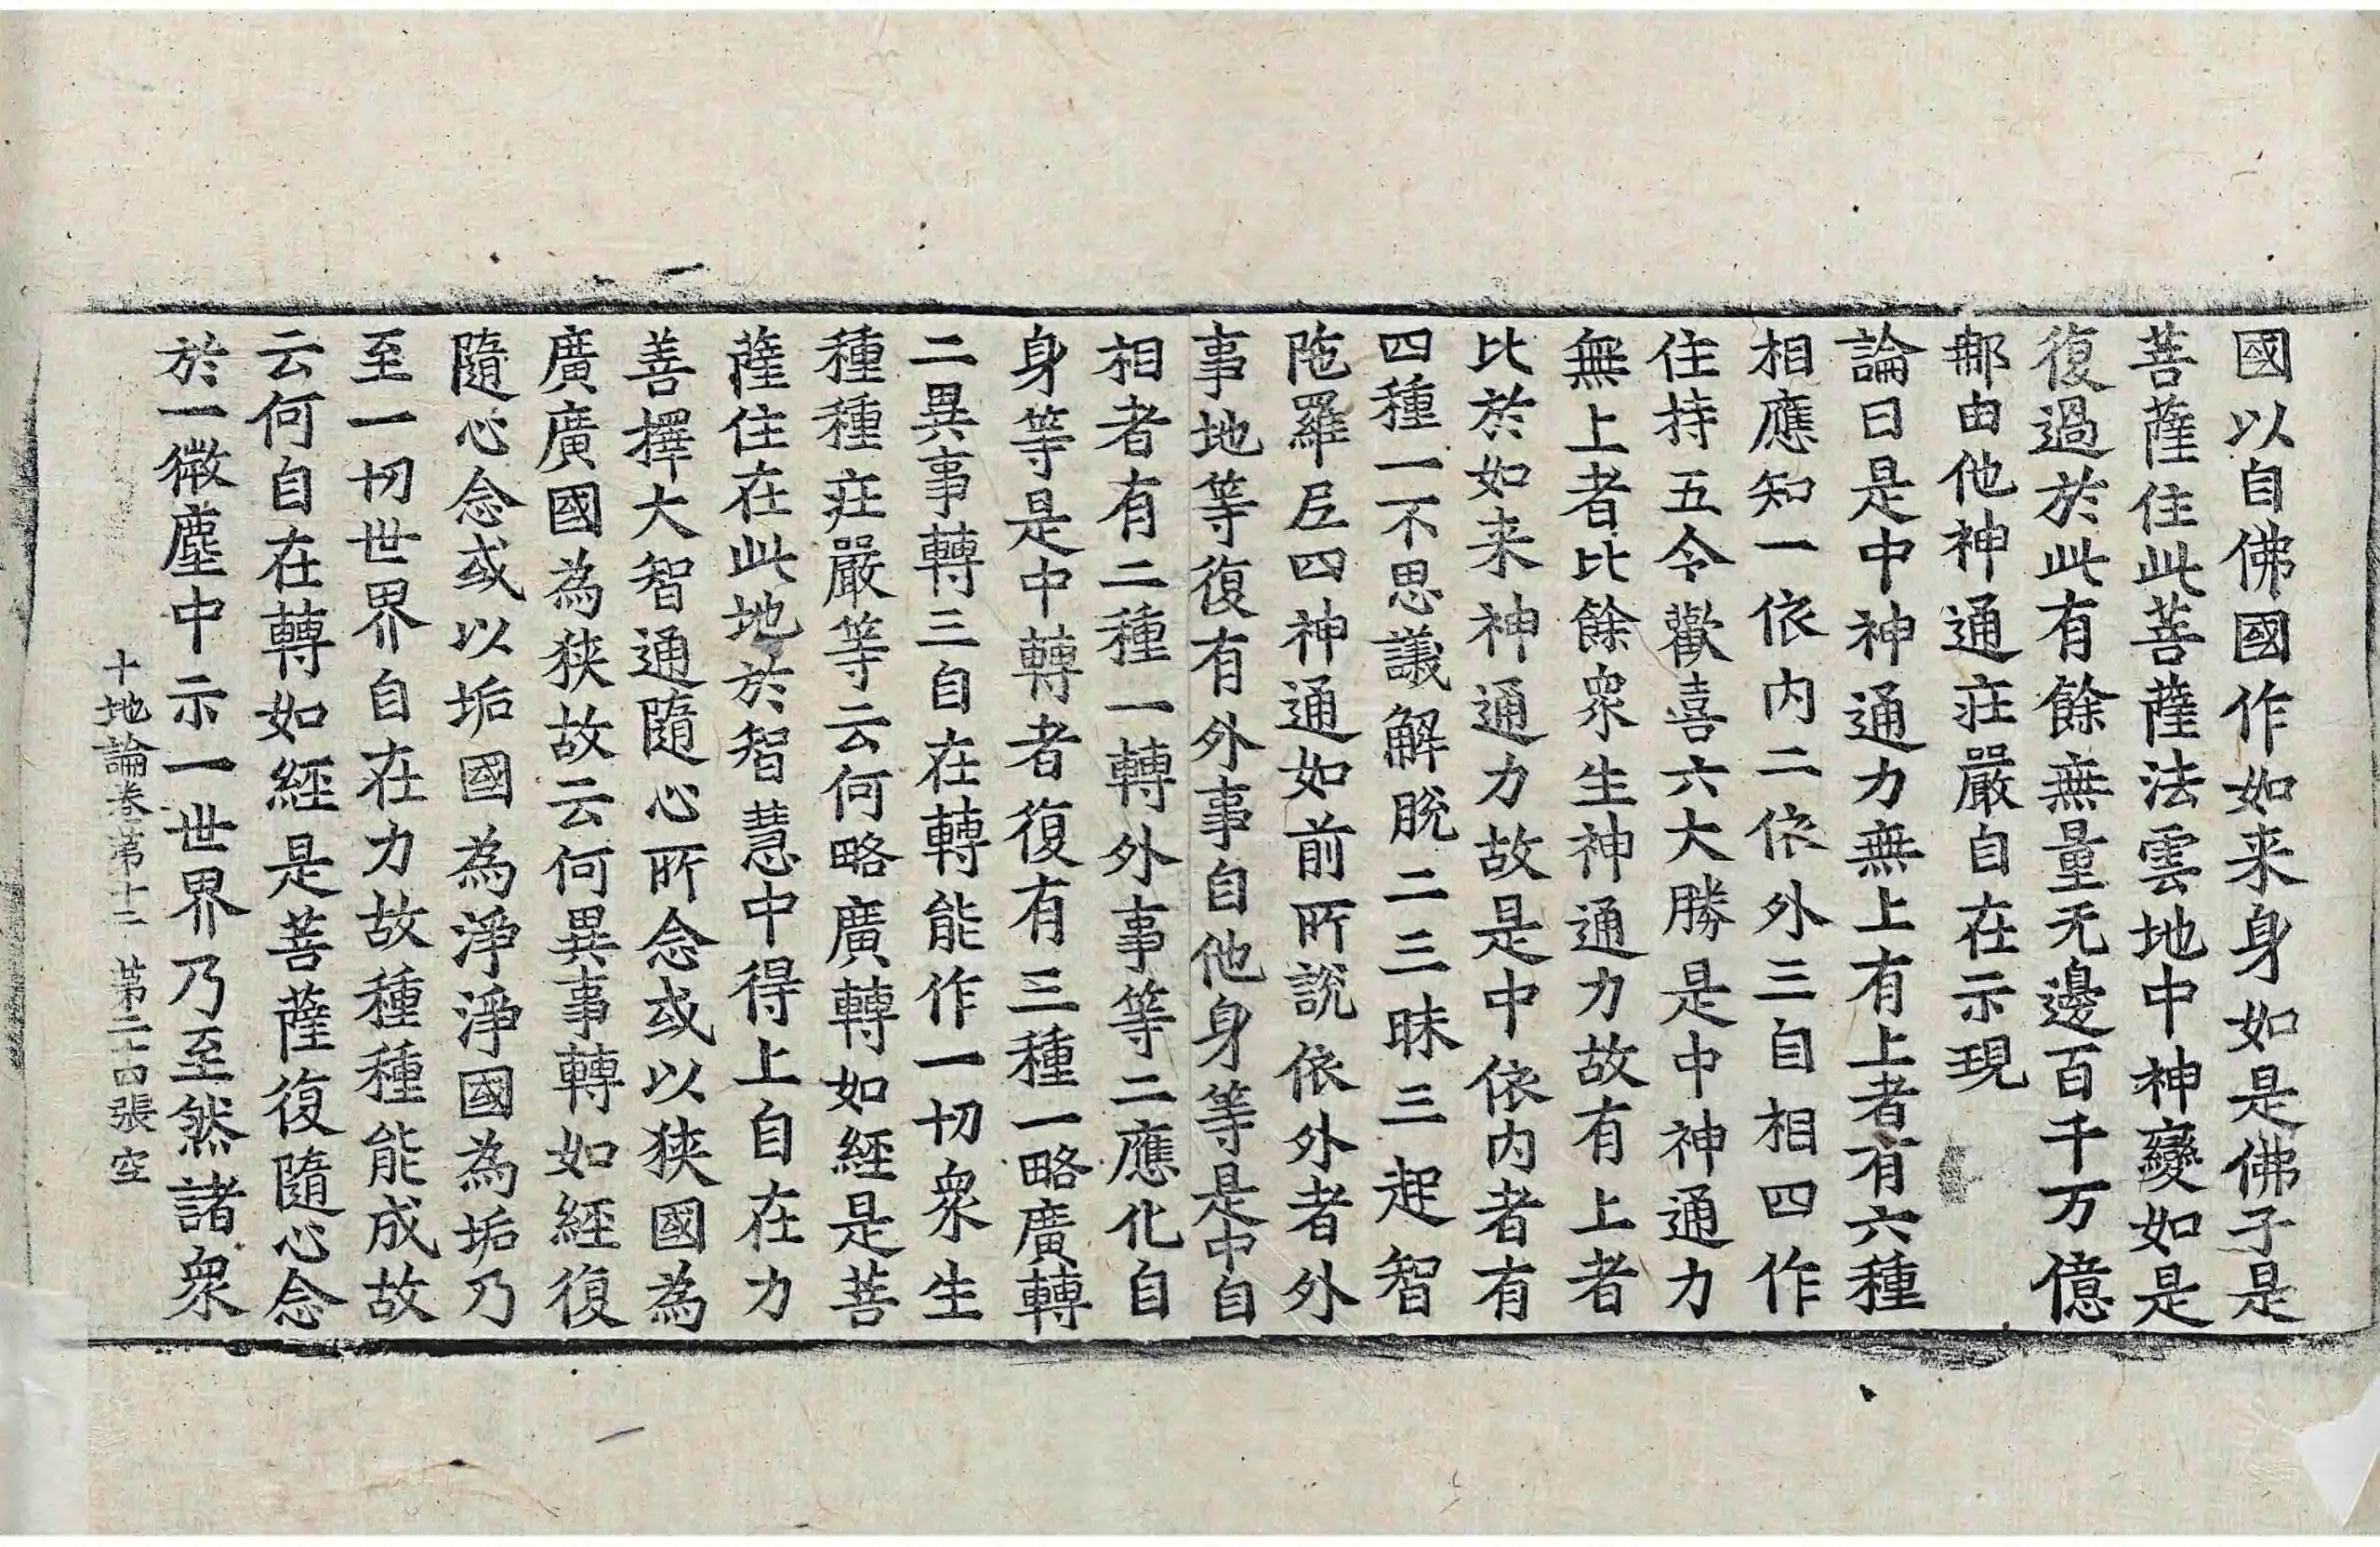 國以自佛國作如来身如是佛子是
菩薩住此菩薩法雲地中神變如是
復過於此有餘無量无邊百千万億
那由他神通莊嚴自在示現
論曰是中神通力無上有上者有六種
相應知一依内二依外三自相四作
住持五令歡喜六大勝是中神通力
無上者比餘衆生神通力故有上者
比於如来神通力故是中依内者有
四種一不思議解脱二三昧三起智
陁羅尼四神通如前所說依外者外
事地等復有外事自他身等是中自
相者有二種一轉外事等二應化自
身等是中轉者復有三種一略廣轉
二異事轉三自在轉能作一切衆生
種種莊嚴等云何略廣轉如經是菩
薩住在此地於智慧中得上自在力
善擇大智通隨心所念或以狹國為
廣廣國為狹故云何異事轉如經復
隨心念或以垢國為淨淨國為垢乃
至一切世界自在力故種種能成故
云何自在轉如經是菩薩復隨心念
於一微塵中示一世界乃至然諸衆
十地論卷第十二 第二十四張 空